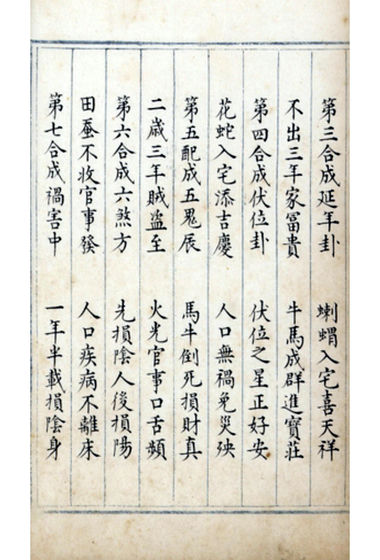 第三合成延年卦　蝌蝟入宅喜天祥
不出三年家冨貴　牛馬成群進寶莊
第四合成伏位卦　伏位之星正好安
花蛇入宅添吉慶　人口無禍免災殃
第五配成五鬼辰　馬牛倒死損財真
二歲三年賊盗至　火光官事口舌頻
第六合成六煞方　先損陰人後損陽
田蚕不收官事發　人口疾病不離床
第七合成禍害中　一年半載損陰身